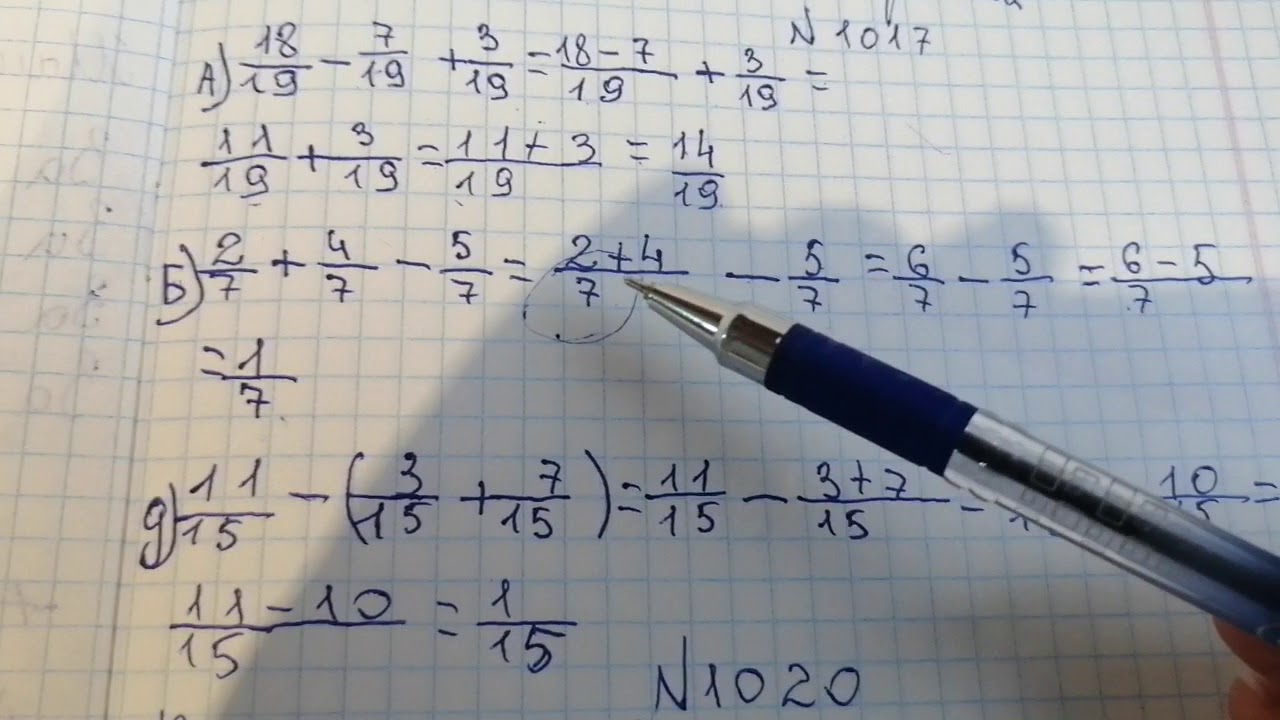 N 1017
А) 18/19 - 7/19 + 3/19 = 18-7/19 + 3/19 =
11/19 + 3/19 = 11+3/19 = 14/19
Б) 2/7 + 4/7 - 5/7 = 2+4/7 - 5/7 = 6/7 - 5/7 = 6-5/7
= 1/7
д) 11/15 - (3/15 + 7/15) = 11/15 - 3+7/15 = 10/15 =
11-10/15 = 1/15
N 1020